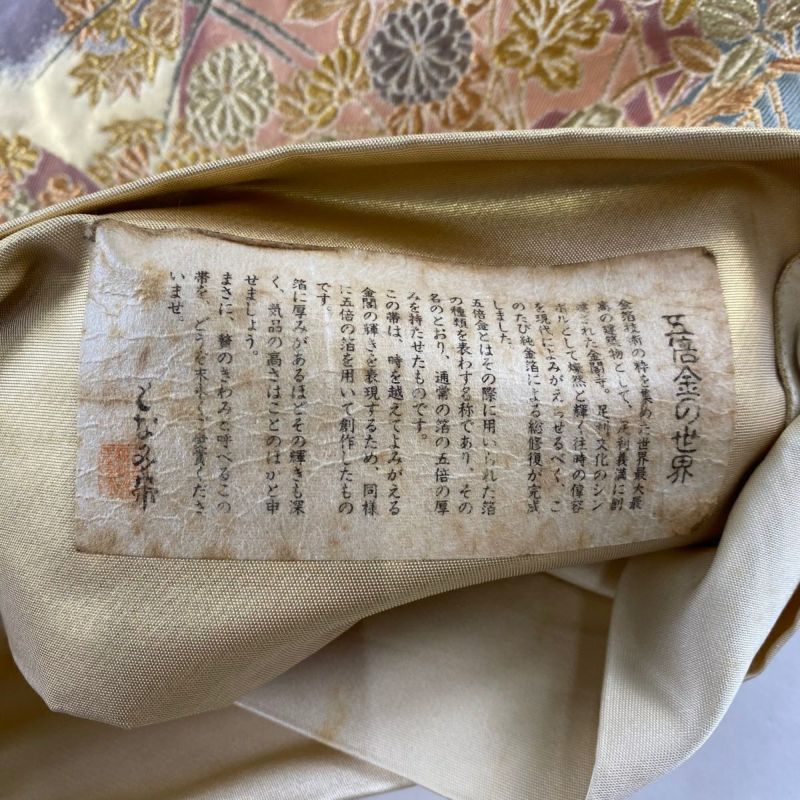 五倍金の世界
金箔技術の粋を集めた世界最大最
高の建築物として、足利義満に創
建された金閣寺。足利文化のシン
ボルとして燦然と輝く往時の偉容
を現代によみがえらせるべく、こ
のたび純金箔による総修復が完成
しました。
五倍金とはその際に用いられた箔
の種類を表わする称であり、その
名のとおり、通常の箔の五倍の厚
みを持たせたものです。
この帯は、時を越えてよみがえる
金閣の輝きを表現するため、同様
に五倍の箔を用いて創作したもの
です。
箔に厚みがあるほどその輝きも深
く、気品の高さはことのほかと申
せましょう。
まさに、贅のきわみと呼べるこの
帯を、どうぞ末永くご愛賞くださ
いませ。
となみ帯